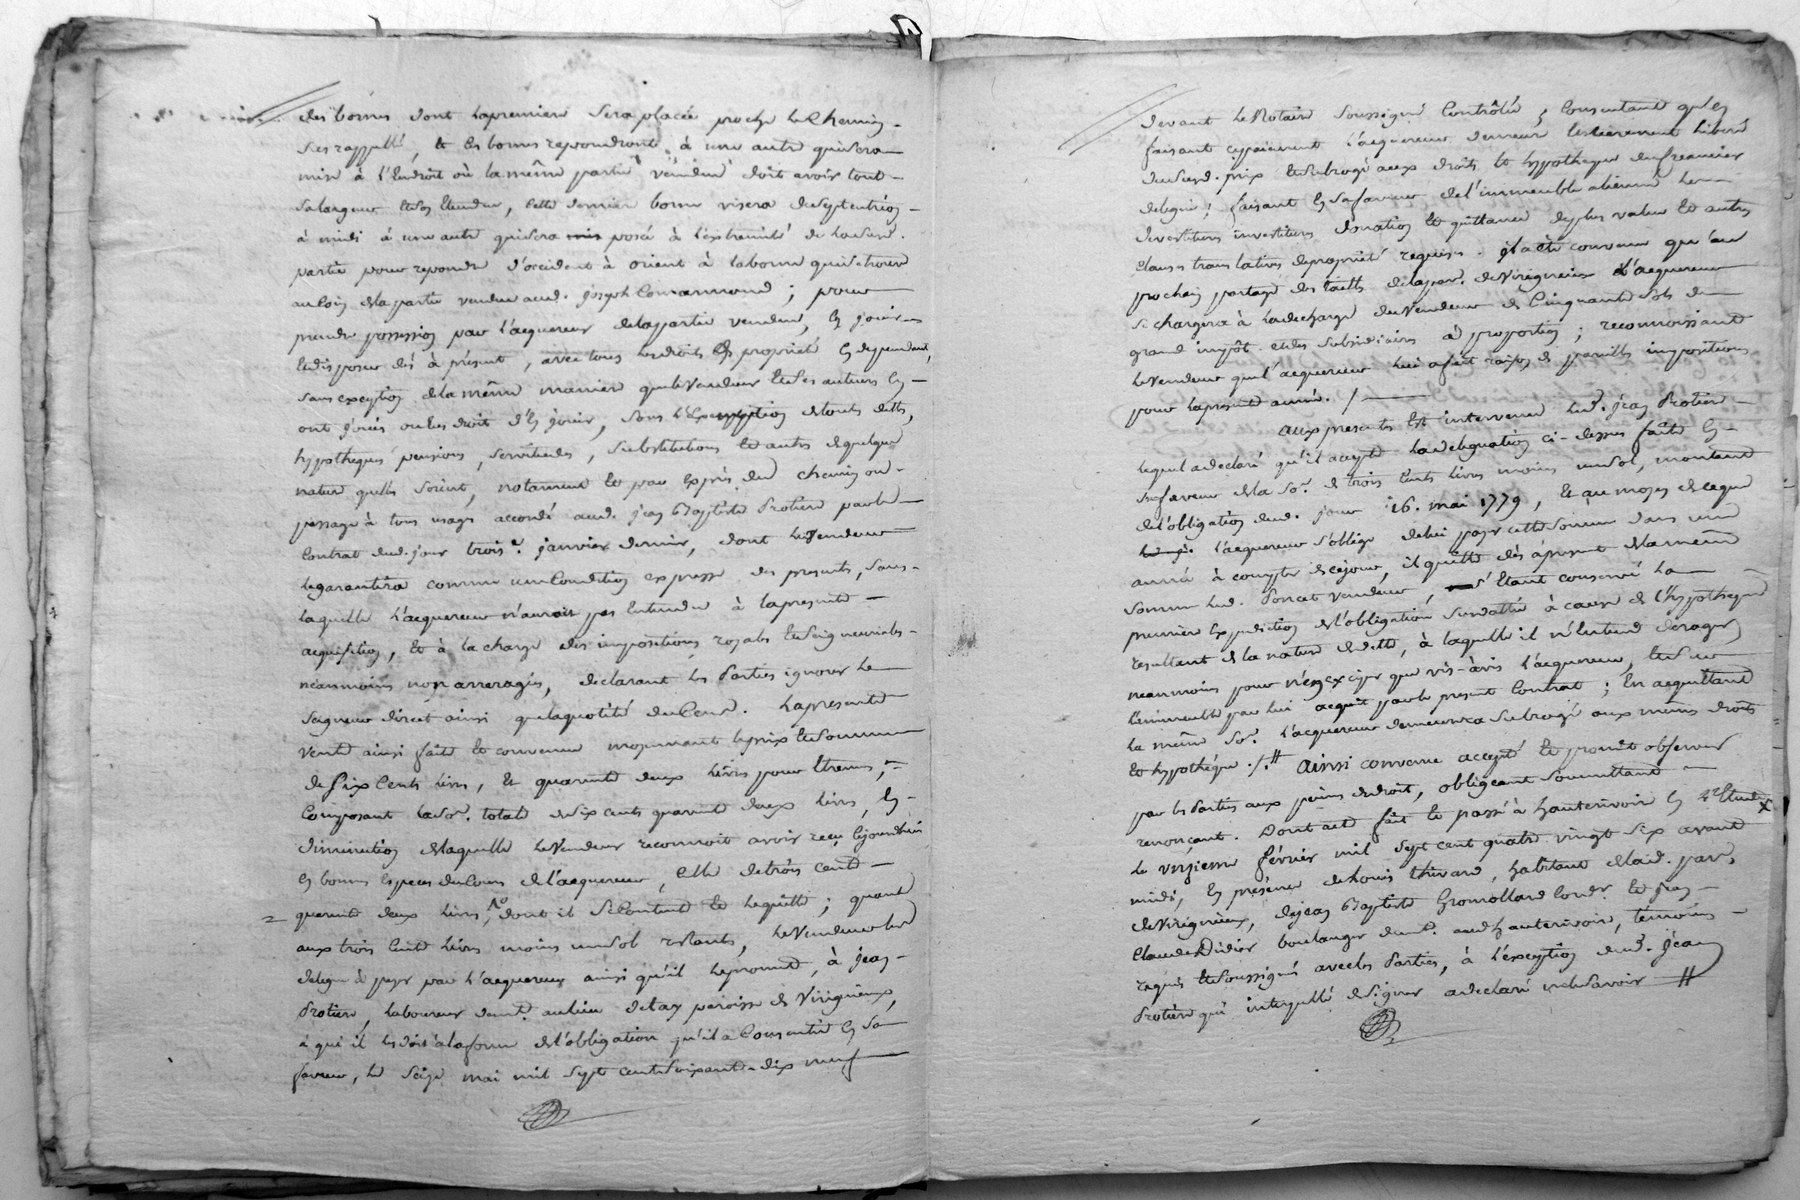 des bornes dont la premiere sera placée proche le Chemin
sus rappellé, et les bornes repondront à une autre qui sera
mise à l'Endroit où la même partie vendue doit avoir tout
sa largeur et son Etendue, cette derniere borne visera de septentrion
à midi à une autre qui sera mis posée à l'extremité de lausd.
partie pour repondre d'occident à orient à la borne qui se trouve
au coin de la partie vendue aud. joseph Commarmond ; pour
prendre possession par l'acquereur de la partie vendue, En jouir
et disposer dès à présent, avec tous les droits de propriété En dependant,
sans exception de la même maniere que le Vendeur et ses auteurs En
ont jouis ou eu droit d'En jouir, sous l'Exemption de touts dettes,
hypotheques pensions, servitudes, substitutions et autres de quelque
nature qu'elles soient, notament et par Exprès du chemin ou
passage à tous usages accordé aud. jean Baptiste Protiere par le
Contrat dud. jour trois.e janvier dernier, dont le Vendeur
le garantira comme une Condition expresse des presentes, sans
laquelle l'acquereur n'auroit pas Entendu à la presente
acquisition, et à la charge des impositions royales et seigneuriales
néanmoins non arreragés, declarant les Parties ignorer le
seigneur direct ainsi que la quotité du Cens. La presente
vente ainsi faite et convenue moyennant le prix et somme
de six Cents livres, et quarante deux livres pour Etrenne,
Composant la so.e totale de six cents quarante deux livres, En
diminution de laquelle le Vendeur reconnoit avoir reçu cejourd'hui
En bonnes Especes du Cours de l'acquereur, celle de trois cent
quarante deux livres, 1s dont il se Contente et le quitte ; quant
aux trois cents livres moins un sol restants, le Vendeur les
delegue à payer par l'acquereur ainsi qu'il le promet, à jean
Protiere, laboureur demt. au lieu de Lay paroisse de Virigneux,
à qui il les doit à la forme de l'obligation qu'il a Consentie En sa
faveur, le seize mai mil sept cent soixante-dix neuf
devant le Notaire soussigné Contrôlée ; Consentant qu'En
faisant ce paiement l'acquereur demeure Entierement liberé
du susd. prix et subrogé aux droits et hypotheque du creancier
delegué ; faisant En sa faveur de l'immeuble aliené les
devestitures investitures donation et quittance de plus value et autres
clauses translatives de proprieté requises. il a été convenu qu'au
prochain partage des tailles de lad. par. de Virigneux l'acquereur
se chargera à la decharge du Vendeur de Cinquante sols de
grand impôt et des subsidiaires à proportion ; reconnoissant
le Vendeur que l'acquereur lui a fait raison de pareilles impositions
pour la presente année. /
aux presentes Est intervenu led. jean Protiere
lequel a declaré qu'il accepte la delegation ci-dessus faite En
sa faveur de la so.e de trois Cents livres moins un sol, montant
de l'obligation dud. jour 16. mai 1779, et au moyen de ce que
l'acquereur s'oblige de lui payer cette somme dans une
année à compter de ce jour, il quitte dès à present de la même
somme led. Poncet vendeur, s'Etant conservé la
premiere Expedition de l'obligation susdattée à cause de l'hypotheque
resultant de la nature de dette, à laquelle il n'entend deroger
neanmoins pour n'En exciper que vis-àvis l'acquereur, et sur
l'immeuble par lui acquit par le present Contrat ; En acquittant
la même so.e l'acquereur demeurera subrogé aux mêmes droits
et hypothéque ./. Ainsi convenu accepté et promit observer
par les Parties aux peines de droit, obligeant soumettant
renonçant. Dont acte fait et passé à hauterivoir En l'Etude
le onzieme fevrier mil sept cent quatre vingt six avant
midi, En présence de Louis thivard, habitant de lad. par.
de Virigneux, de jean Baptiste Gromollard Cordr. et jean
Claude Didier boulanger demt. aud. hauterivoir, temoins
requis et soussignés avec les Parties, à l'exception dud. jean
Protiere qui interpellé de signer a declaré ne le savoir